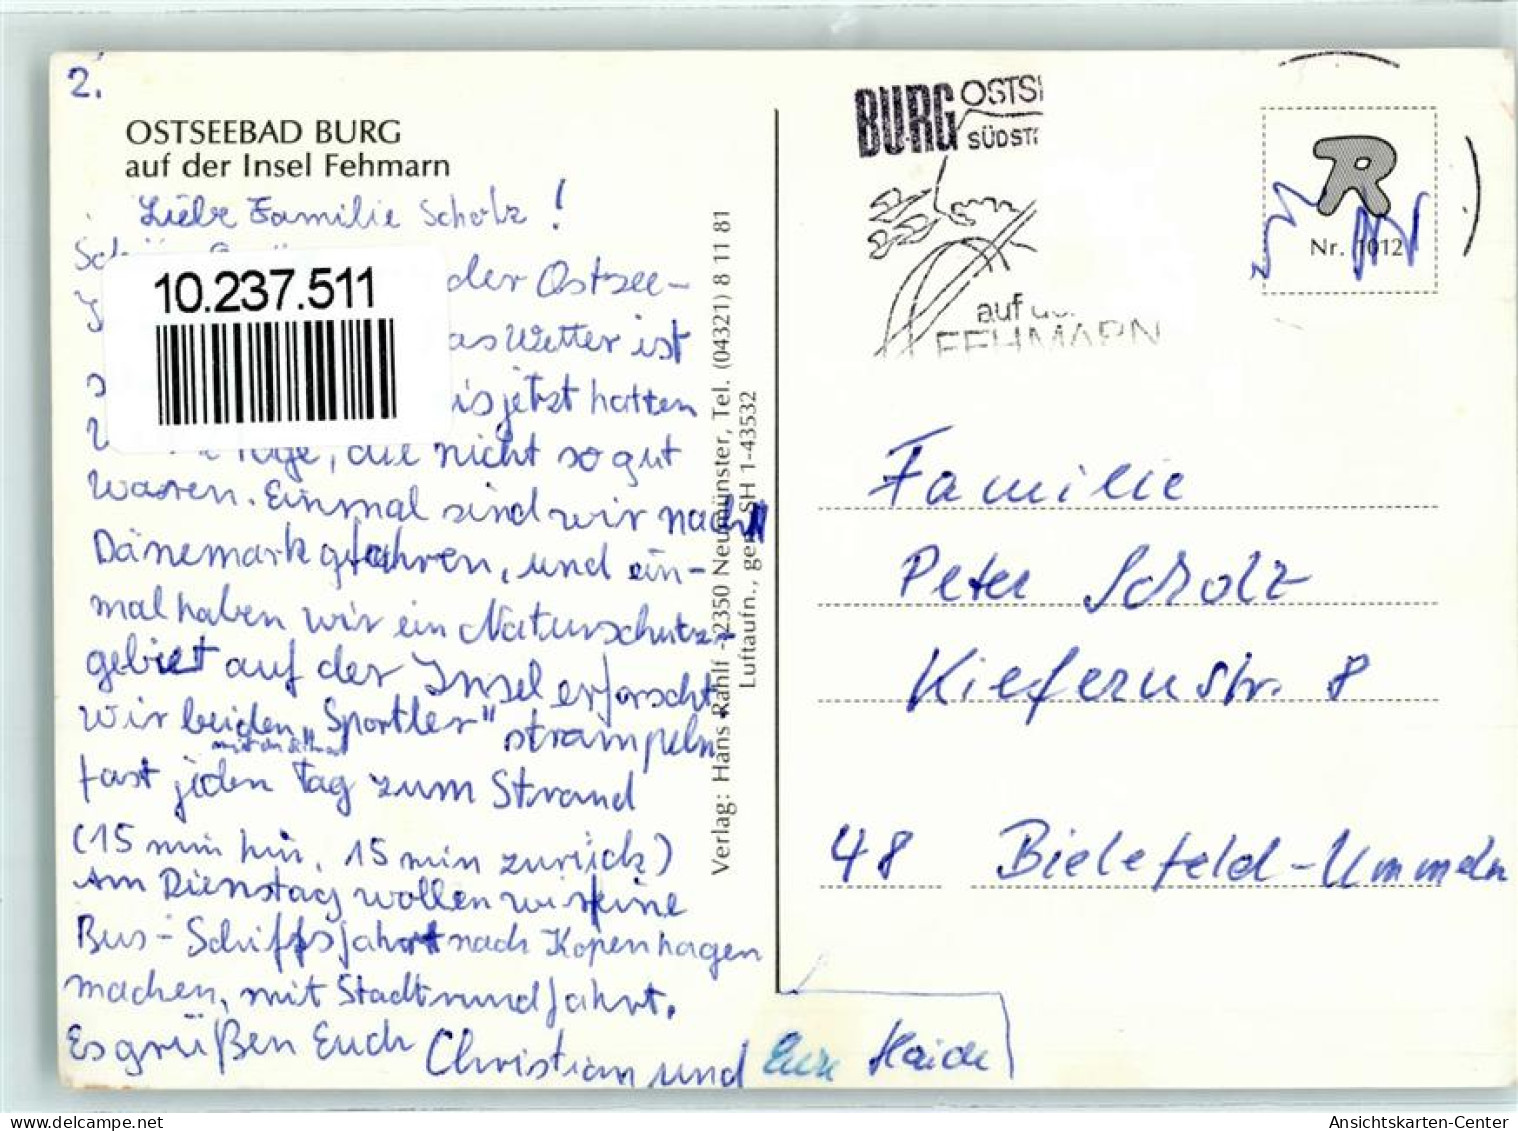 2.
OSTSEEBAD BURG
auf der Insel Fehmarn
Liebe Familie Scholz!
der Ostsee-
as Wetter ist
is jetzt hatten
Tage, die nicht so gut
waren. Einmal sind wir nach
Dänemark gefahren, und ein-
mal haben wir ein Naturschutz-
gebiet auf der Insel erforscht.
Wir beiden "Sportler" strampeln
fast jeden Tag zum Strand
(15 min hin, 15 min zurück)
Am Dienstag wollen wir eine
Bus-Schiffsfahrt nach Kopenhagen
machen, mit Stadtrundfahrt.
Es grüßen Euch Christian und Eure Haide
10.237.511
Verlag: Hans Rahlf - 2350 Neumünster, Tel. (04321) 8 11 81
Luftaufn., gen. SH 1-43532
BURG OSTS
SÜDST
auf
FEHMARN
R
Nr. 1012
Familie
Peter Scholz
Kiefernstr. 8
48 Bielefeld-Ummeln
Ansichtskarten-Center